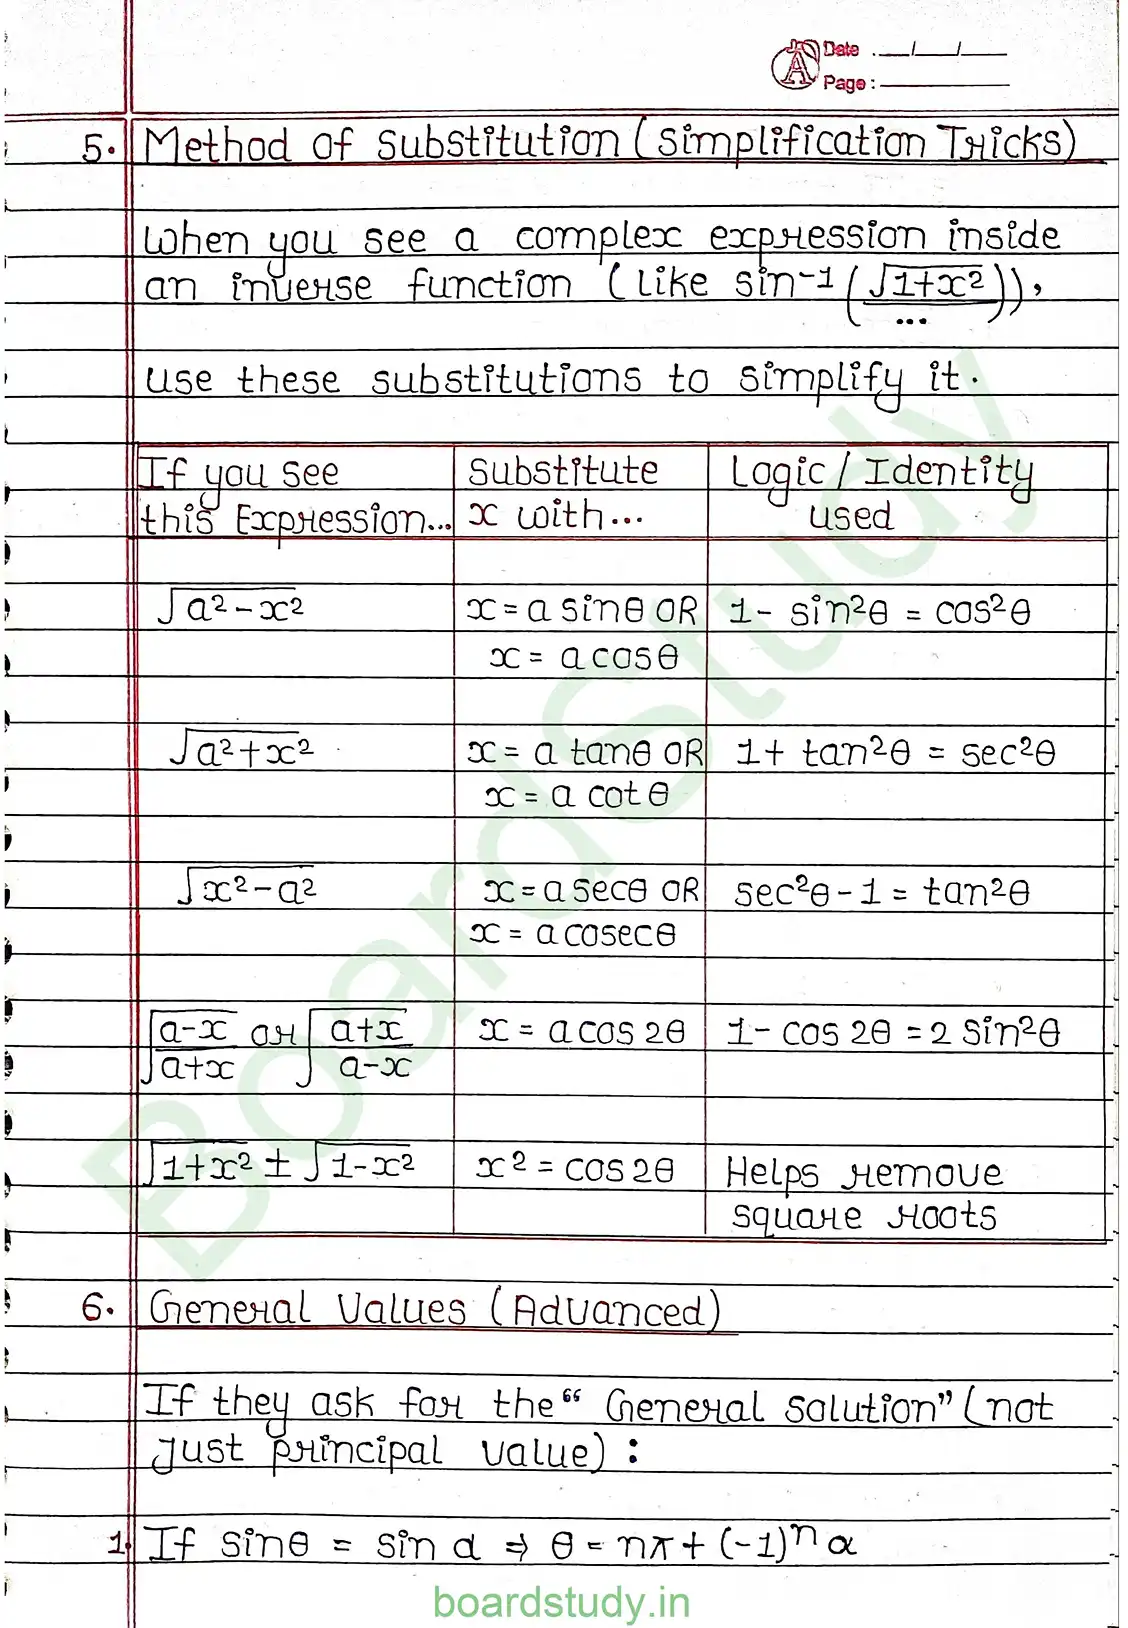 Date : __/__/__
Page :
5. Method of Substitution (Simplification Tricks)
When you see a complex expression inside
an inverse function (like sin⁻¹(√1+x²/...)),
use these substitutions to simplify it.
If you see this Expression... | Substitute x with... | Logic / Identity used
√a²-x² | x = a sinθ OR x = a cosθ | 1 - sin²θ = cos²θ
√a²+x² | x = a tanθ OR x = a cotθ | 1 + tan²θ = sec²θ
√x²-a² | x = a secθ OR x = a cosecθ | sec²θ - 1 = tan²θ
√a-x/a+x or √a+x/a-x | x = a cos 2θ | 1 - cos 2θ = 2 sin²θ
√1+x² ± √1-x² | x² = cos 2θ | Helps remove square roots
6. General Values (Advanced)
If they ask for the “General Solution” (not
just principal value) :
1. If sinθ = sin α ⇒ θ = nπ + (-1)ⁿ α
BoardStudy
boardstudy.in